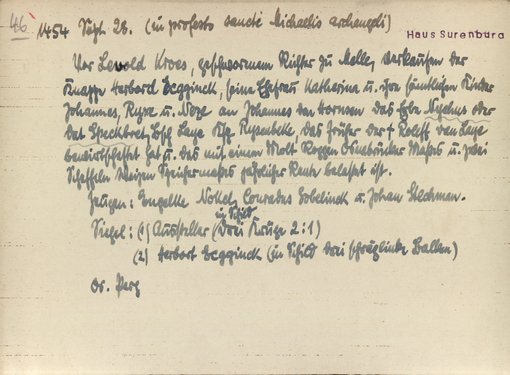 46
1454 Sept. 28. (in profesto sancti Michaelis archangeli)
Haus Surenburg
Vor Levold Kroes, geschworenem Richter zu Melle, verkaufen der
Knappe Herbord Degginck, seine Ehefrau Katherina u. ihre sämtlichen Kinder
Johannes, Ryxe u. Neze an Johannes von Hornsen das Erbe Nyehus oder
Dat Speckbret, Ksp. Laye Bsch. das früher der † Roleff van Laye
bewirtschaftet hat u. das mit einem Molt Roggen Osnabrücker Maßes u. zwei
Scheffeln Weizen jährlicher Rente belastet ist.
Zeugen: Engelke Nokel, Conrades Gobelinck u. Johan Slechman.
in Schild
Siegel: (1) Aussteller (Drei Kruge 2:1)
(2) Herbort Degginck (in Schild drei schräglinke Balken)
Or. Perg